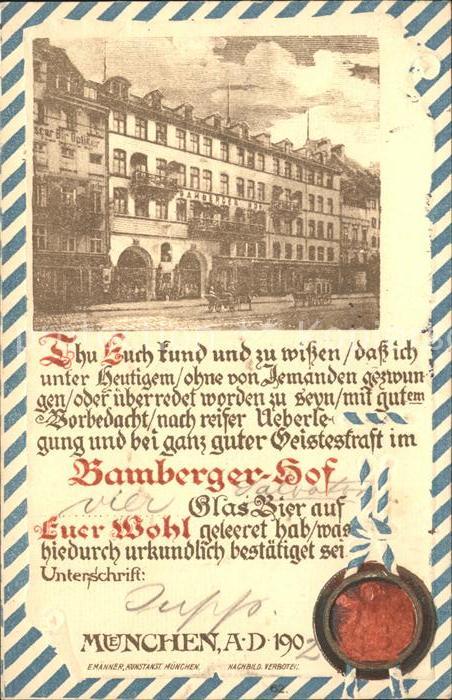 BAMBERGER HOF
Thu Euch kund und zu wißen/daß ich
unter Heutigem/ohne von Jemanden gezwun-
gen/oder überredet worden zu seyn/mit gutem
Vorbedacht/nach reifer Ueberle-
gung und bei ganz guter Geisteskraft im
Bamberger-Hof
vier Glas Bier auf
Euer Wohl geleeret hab/was
hiedurch urkundlich bestätiget sei
Unterschrift:
MUENCHEN, A·D·190
E.MÄNNER, KUNSTANST. MÜNCHEN. NACHBILD. VERBOTEN.
62.